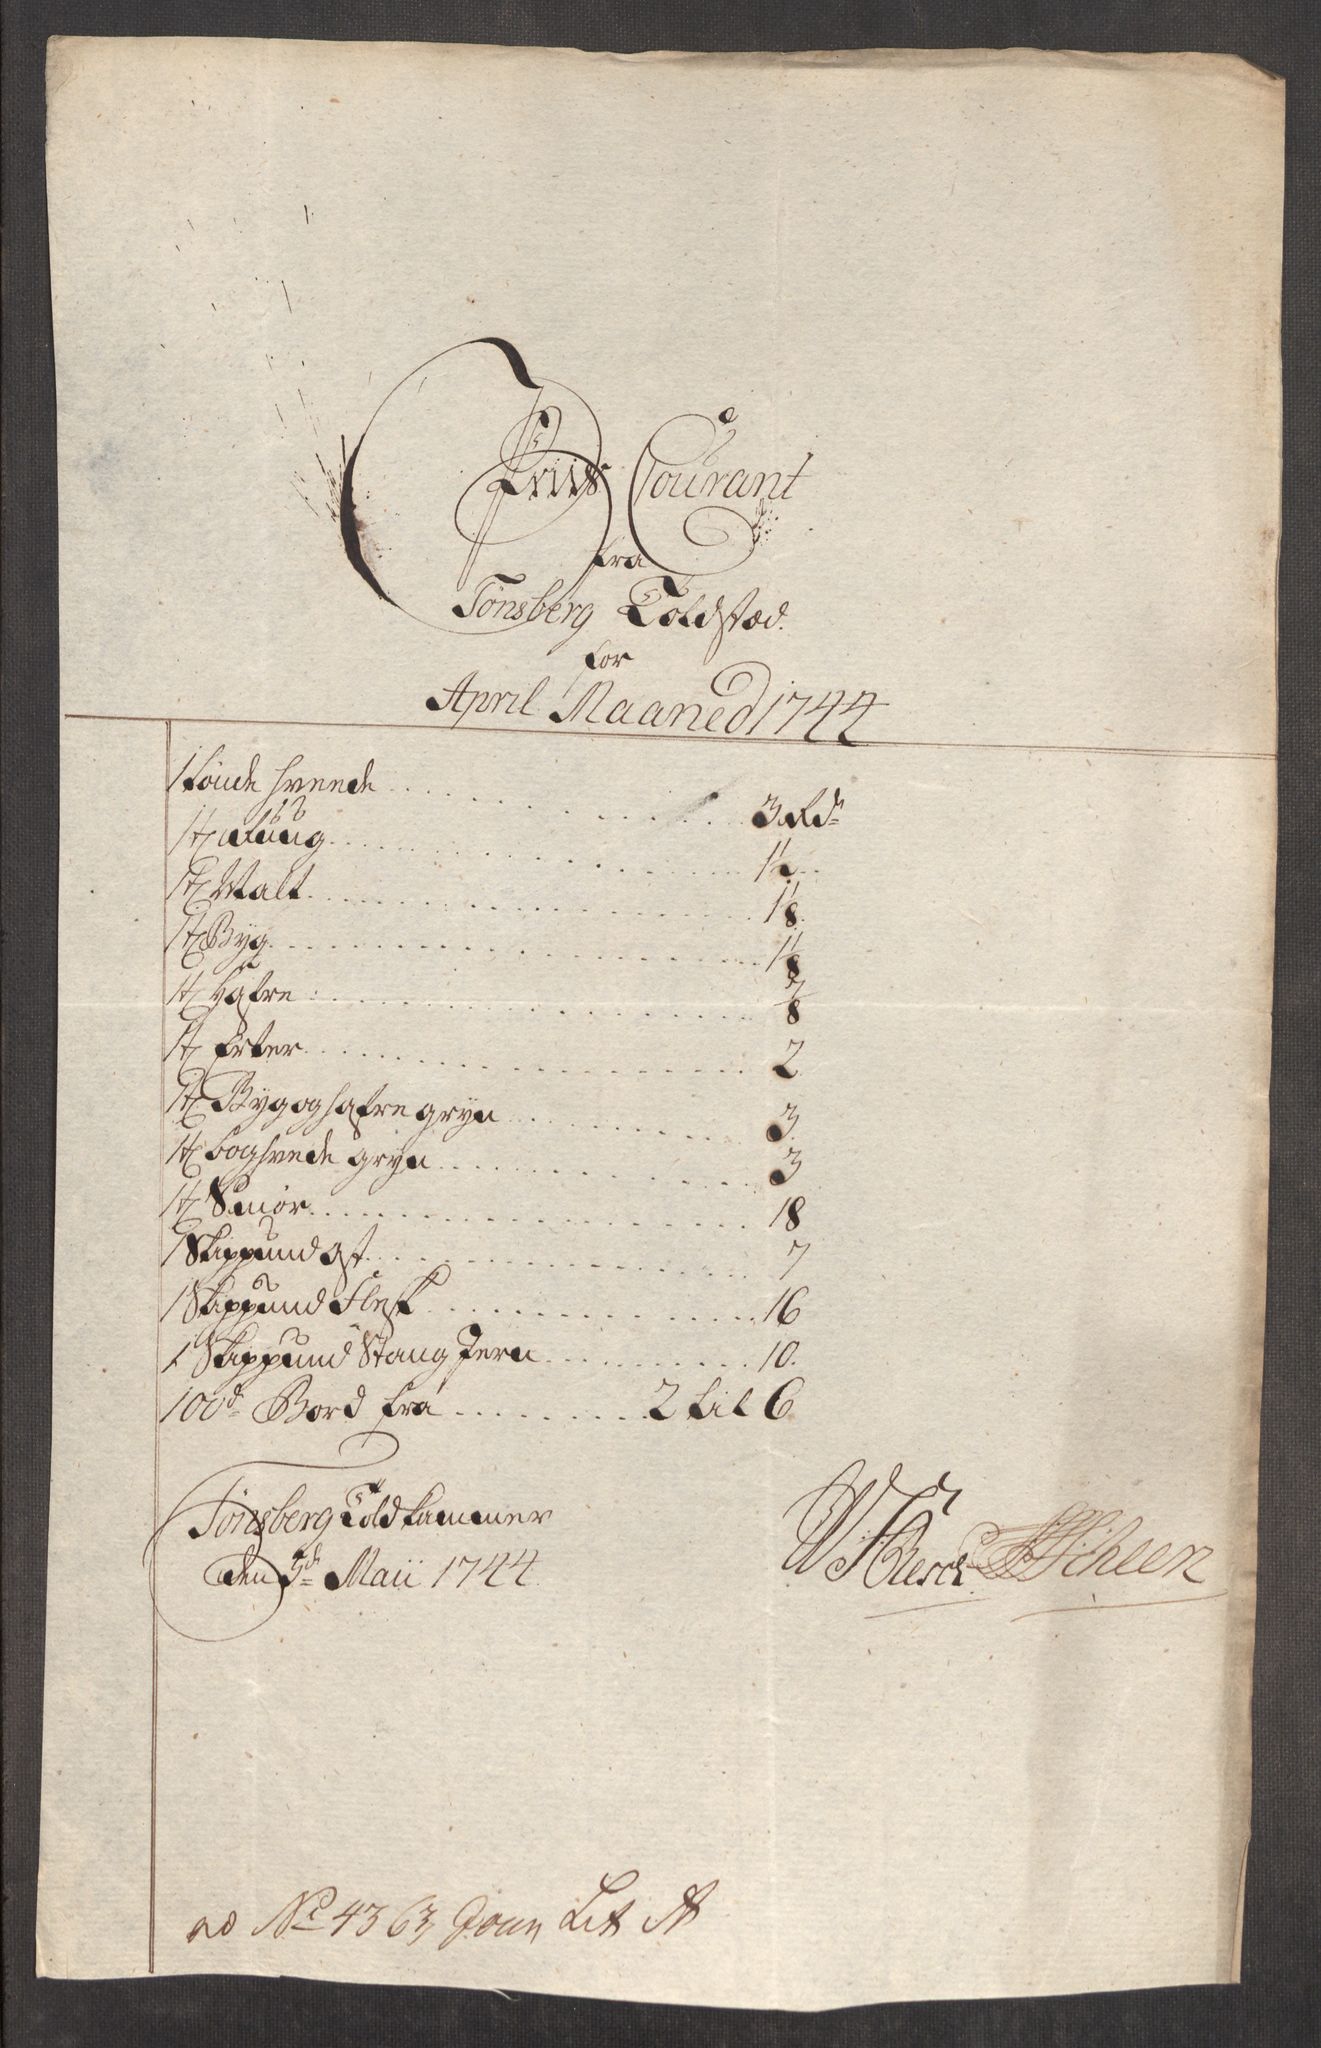 Priis Courant
fra
Tönsberg Toldstæd.
for
April Maaned 1744
1 tönde hvede . . . . . 3 Rdr
1 tr Rug . . . . . 1½
1 tr Malt . . . . . 1⅛
1 tr Byg . . . . . 1⅛
1 tr hafre . . . . . 7/8
1 tr Erter . . . . . 2
1 tr Byg og hafre gryn . . . . . 3
1 tr boghvede gryn . . . . . 3
1 tr Smör . . . . . 18
1 Skippund Ost . . . . . 7
1 Skippund Flesk . . . . . 16
1 Skippund Stang Jern . . . . . 10.
100d Bord fra . . . . . 2 til 6
Tönsberg Toldkammer
den 3d Maii 1744.
ad No 4363 Journ Lit A